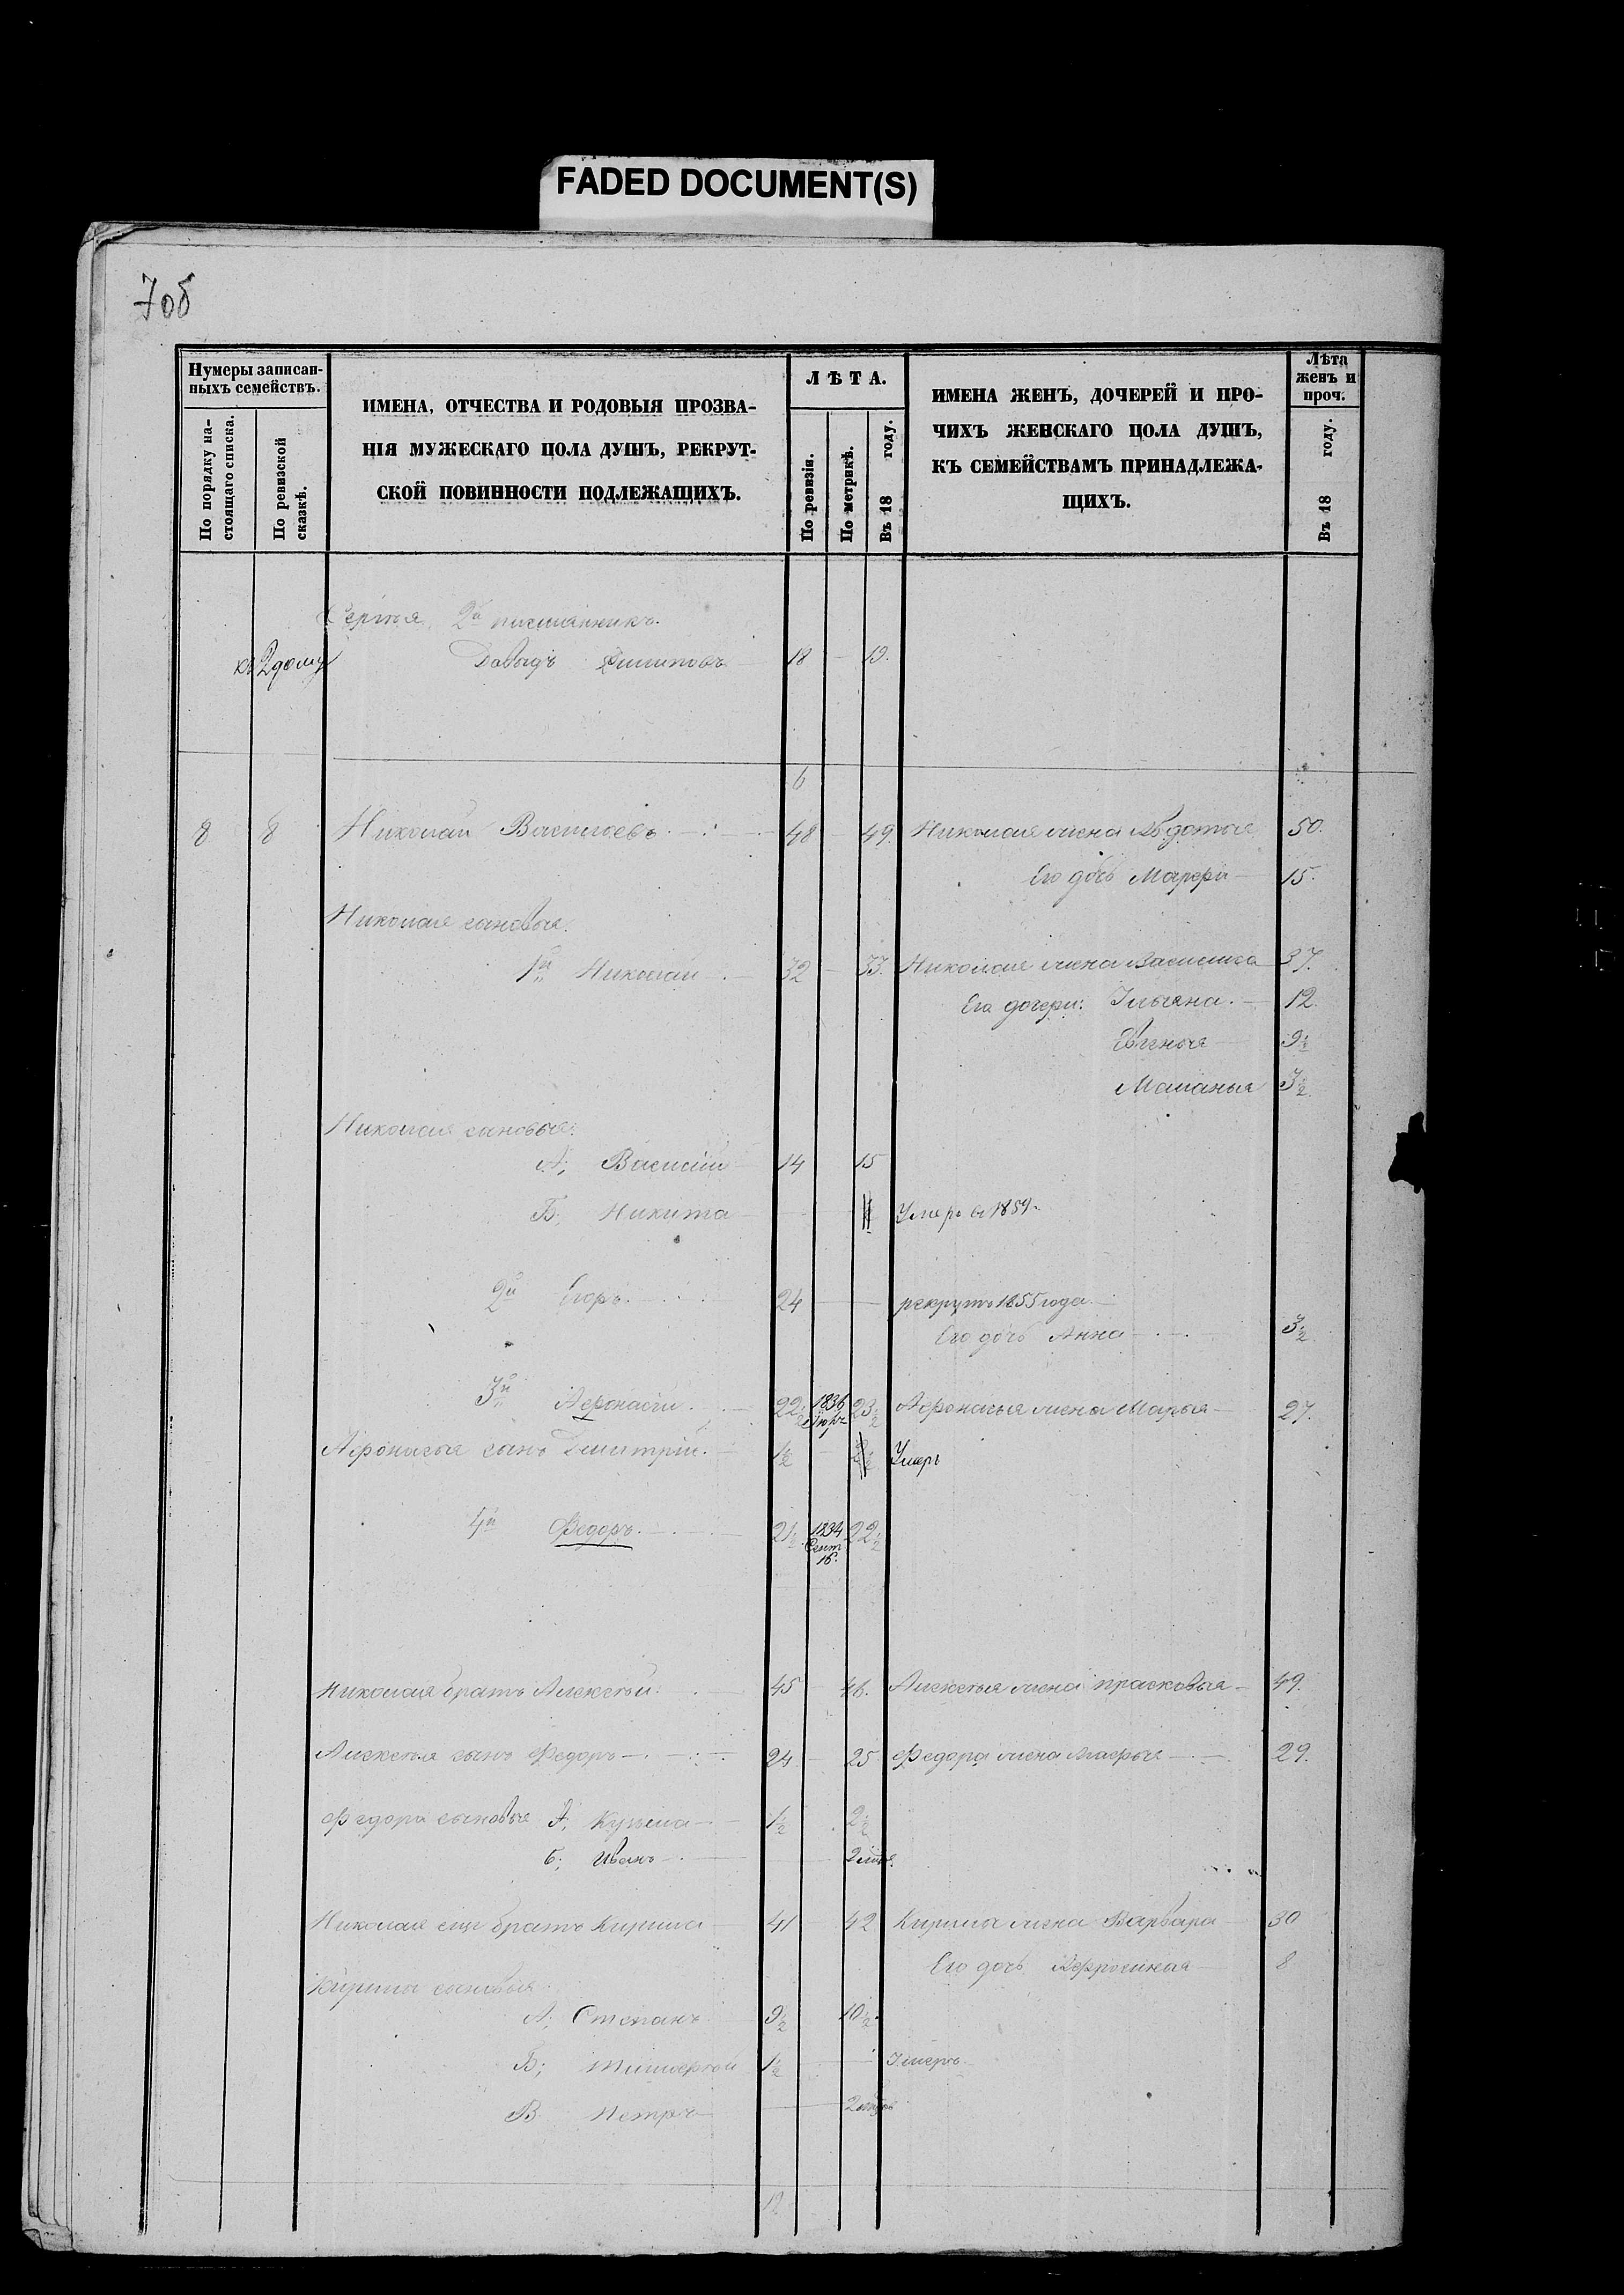 FADED DOCUMENT(S)
7об
Нумеры записан-
ныхъ семействъ.
По порядку на-
стоящаго списка.
По ревизской
сказкѣ.
ИМЕНА, ОТЧЕСТВА И РОДОВЫЯ ПРОЗВА-
НІЯ МУЖЕСКАГО ПОЛА ДУШЪ, РЕКРУТ-
СКОЙ ПОВИННОСТИ ПОДЛЕЖАЩИХЪ.
ЛѢТА.
По ревизіи.
По метрикѣ.
Въ 18 году.
ИМЕНА ЖЕНЪ, ДОЧЕРЕЙ И ПРО-
ЧИХЪ ЖЕНСКАГО ПОЛА ДУШЪ,
КЪ СЕМЕЙСТВАМЪ ПРИНАДЛЕЖА-
ЩИХЪ.
Лѣта
женъ и
проч.
Въ 18 году.
Сергея 2й племянникъ.
къ 2 дому Давыдъ Филиповъ 18 — 19.
6
8 8 Николай Васильевъ 48 49. Николая жена Авдотья 50.
Его дочь Марфа 15.
Николая сыновья:
1й Николай 32 — 33. Николая жена Василиса 37.
Его дочери: Ульяна. 12.
Евгенья 9½
Маланья 3½
Николая сыновья:
А; Василій 14 15
Б; Никита Умеръ въ 1859.
2й Егоръ. 24 — рекрутъ 1855 года.
Его дочь Анна 3½
3й Афонасій 22½ 1836 23½ Афонасья жена Марья 27.
Афонасья сынъ Дмитрій. 1½ Умеръ
4й Федоръ. 21½ 1834 Сент 16. 22½
Николая братъ Алексѣй. 45 46. Алексѣя жена Прасковья 49.
Алексѣя сынъ Федоръ 24 25 Федора жена Марья 29.
Федора сыновья А; Кузьма 1½ 2½
Б; Иванъ
Николая еще братъ Кирила 41 42 Кирилы жена Варвара 30
Его дочь Афросинья 8
Кирилы сыновья
А; Степанъ 9½ 10½.
Б; Тимофѣй 1½ — Умеръ.
В Петръ
12